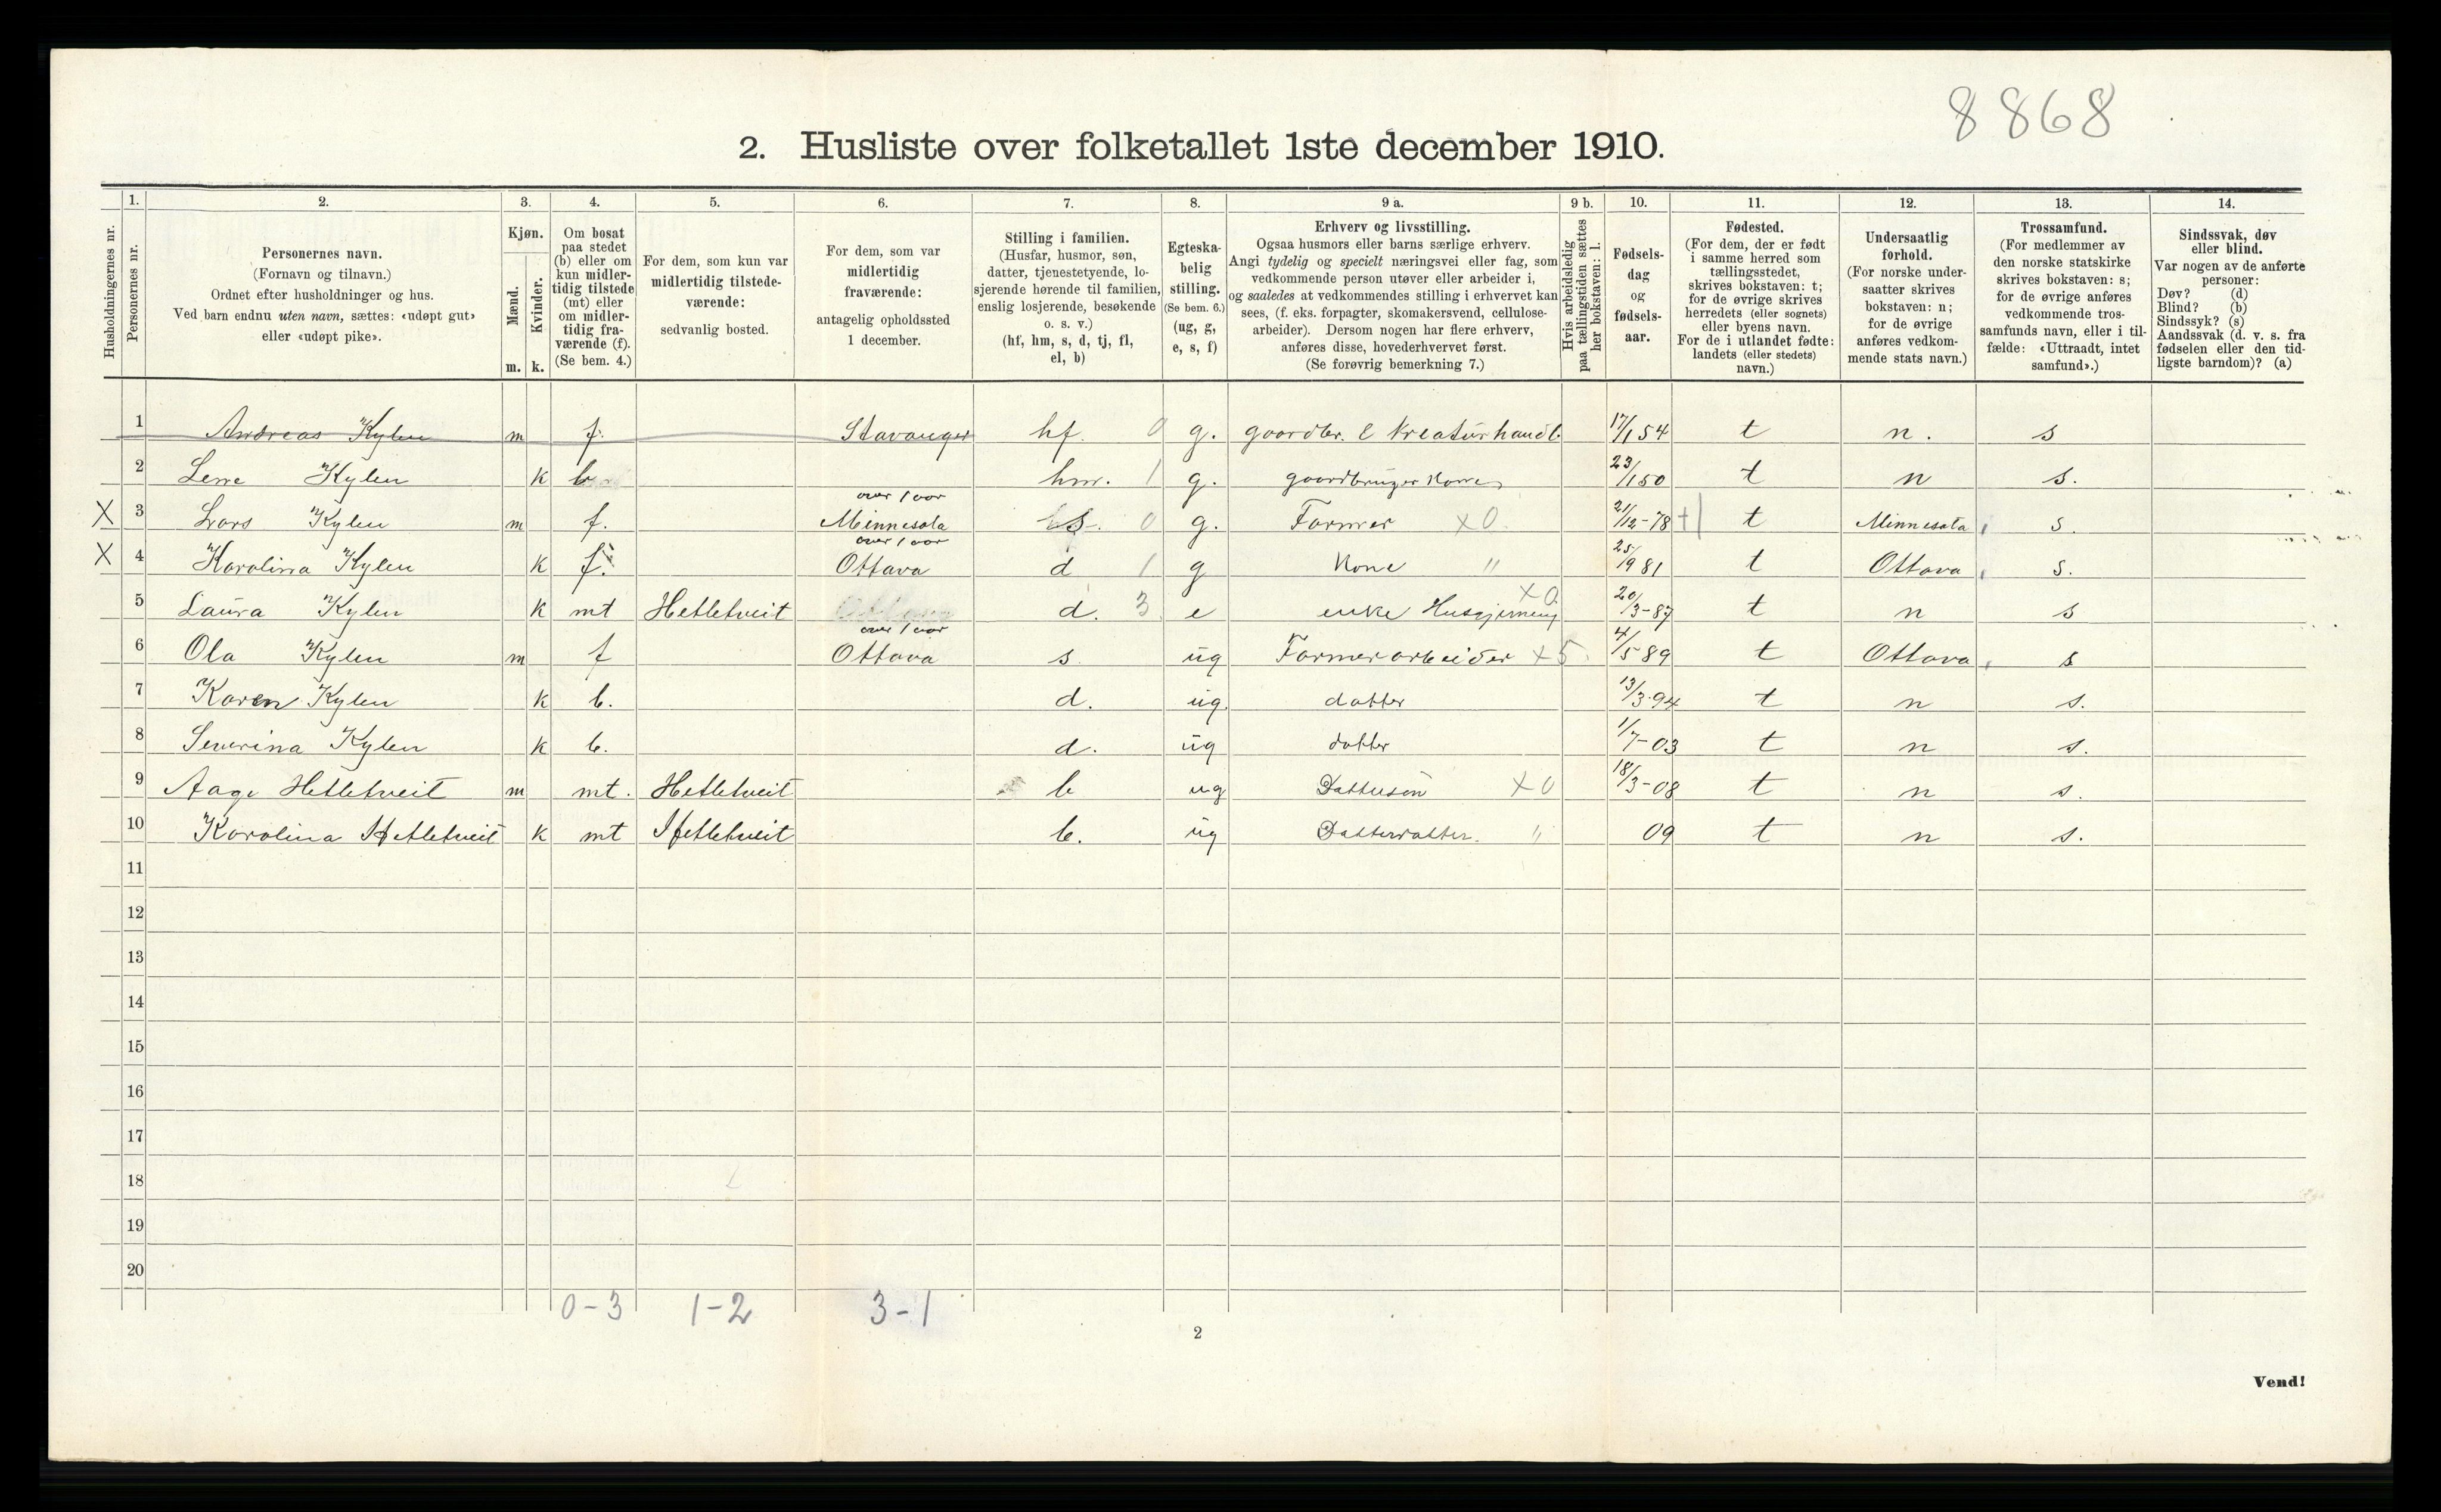 8868
2. Husliste over folketallet 1ste december 1910.
Husholdningernes nr.
1.
Personernes nr.
2.
Personernes navn.
(Fornavn og tilnavn.)
Ordnet efter husholdninger og hus.
Ved barn endnu uten navn, sættes: «udøpt gut»
eller «udøpt pike».
3.
Kjøn.
Mænd. Kvinder.
m. k.
4.
Om bosat
paa stedet
(b) eller om
kun midler-
tidig tilstede
(mt) eller
om midler-
tidig fra-
værende (f).
(Se bem. 4.)
5.
For dem, som kun var
midlertidig tilstede-
værende:
sedvanlig bosted.
6.
For dem, som var
midlertidig
fraværende:
antagelig opholdssted
1 december.
7.
Stilling i familien.
(Husfar, husmor, søn,
datter, tjenestetyende, lo-
sjerende hørende til familien,
enslig losjerende, besøkende
o. s. v.)
(hf, hm, s, d, tj, fl,
el, b)
8.
Egteska-
belig
stilling.
(Se bem. 6.)
(ug, g,
e, s, f)
9 a.
Erhverv og livsstilling.
Ogsaa husmors eller barns særlige erhverv.
Angi tydelig og specielt næringsvei eller fag, som
vedkommende person utøver eller arbeider i,
og saaledes at vedkommendes stilling i erhvervet kan
sees, (f. eks. forpagter, skomakersvend, cellulose-
arbeider). Dersom nogen har flere erhverv,
anføres disse, hovederhvervet først.
(Se forøvrig bemerkning 7.)
9 b.
Hvis arbeidsledig
paa tællingstiden sættes
her bokstaven: l.
10.
Fødsels-
dag
og
fødsels-
aar.
11.
Fødested.
(For dem, der er født
i samme herred som
tællingsstedet,
skrives bokstaven: t;
for de øvrige skrives
herredets (eller sognets)
eller byens navn.
For de i utlandet fødte:
landets (eller stedets)
navn.)
12.
Undersaatlig
forhold.
(For norske under-
saatter skrives
bokstaven: n;
for de øvrige
anføres vedkom-
mende stats navn.)
13.
Trossamfund.
(For medlemmer av
den norske statskirke
skrives bokstaven: s;
for de øvrige anføres
vedkommende tros-
samfunds navn, eller i til-
fælde: «Uttraadt, intet
samfund».)
14.
Sindssvak, døv
eller blind.
Var nogen av de anførte
personer:
Døv? (d)
Blind? (b)
Sindssyk? (s)
Aandssvak (d. v. s. fra
fødselen eller den tid-
ligste barndom)? (a)
1 Andreas Kylen m f. Stavanger hf. 0 g. gaardbr. & Kreaturhandl. 17/1 54 t n. s
2 Lene Kylen k b hm. 1 g. gaardbruger Kone 23/1 50 t n s.
X 3 Lars Kylen m f. over 1 aar Minnesota s. 0 g. Farmer X0 21/12-78 t Minnesota s.
X 4 Karolina Kylen k f. over 1 aar Ottava d 1 g Kone " 25/9 81 t Ottava s.
5 Laura Kylen k mt Hetletveit d. 3 e enke Husgjerning X0 20/3-87 t n s
6 Ola Kylen m f over 1 aar Ottava s. ug Farmerarbeider X5. 4/5 89 t Ottava s
7 Karen Kylen k b. d. ug. datter 13/3-94 t n s.
8 Severina Kylen k b. d. ug datter 1/7-03 t n s.
9 Aage Hetletveit m mt. Hetletveit b ug Dattersøn X0 18/3-08 t n s.
10 Karolina Hetletveit k mt Hetletveit b. ug Datterdatter. " 09 t n s.
11
12
13
14
15
16
17
18
19
20
0-3 1-2 3-1
2
Vend!